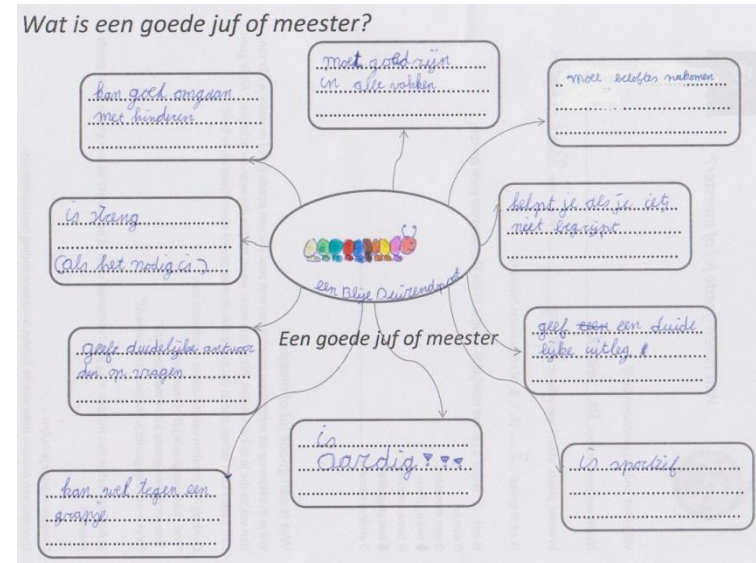 Wat is een goede juf of meester?
kan goed omgaan
met kinderen
moet goed zijn
in alle vakken
moet beloftes nakomen
is streng
(als het nodig is)
helpt je als je iets
niet begrijpt
een Blije Duizendpoot
Een goede juf of meester
geeft duidelijke antwoor
den op vragen
geef een duide
lijke uitleg
kan wel tegen een
grapje
is
aardig!
is sportief